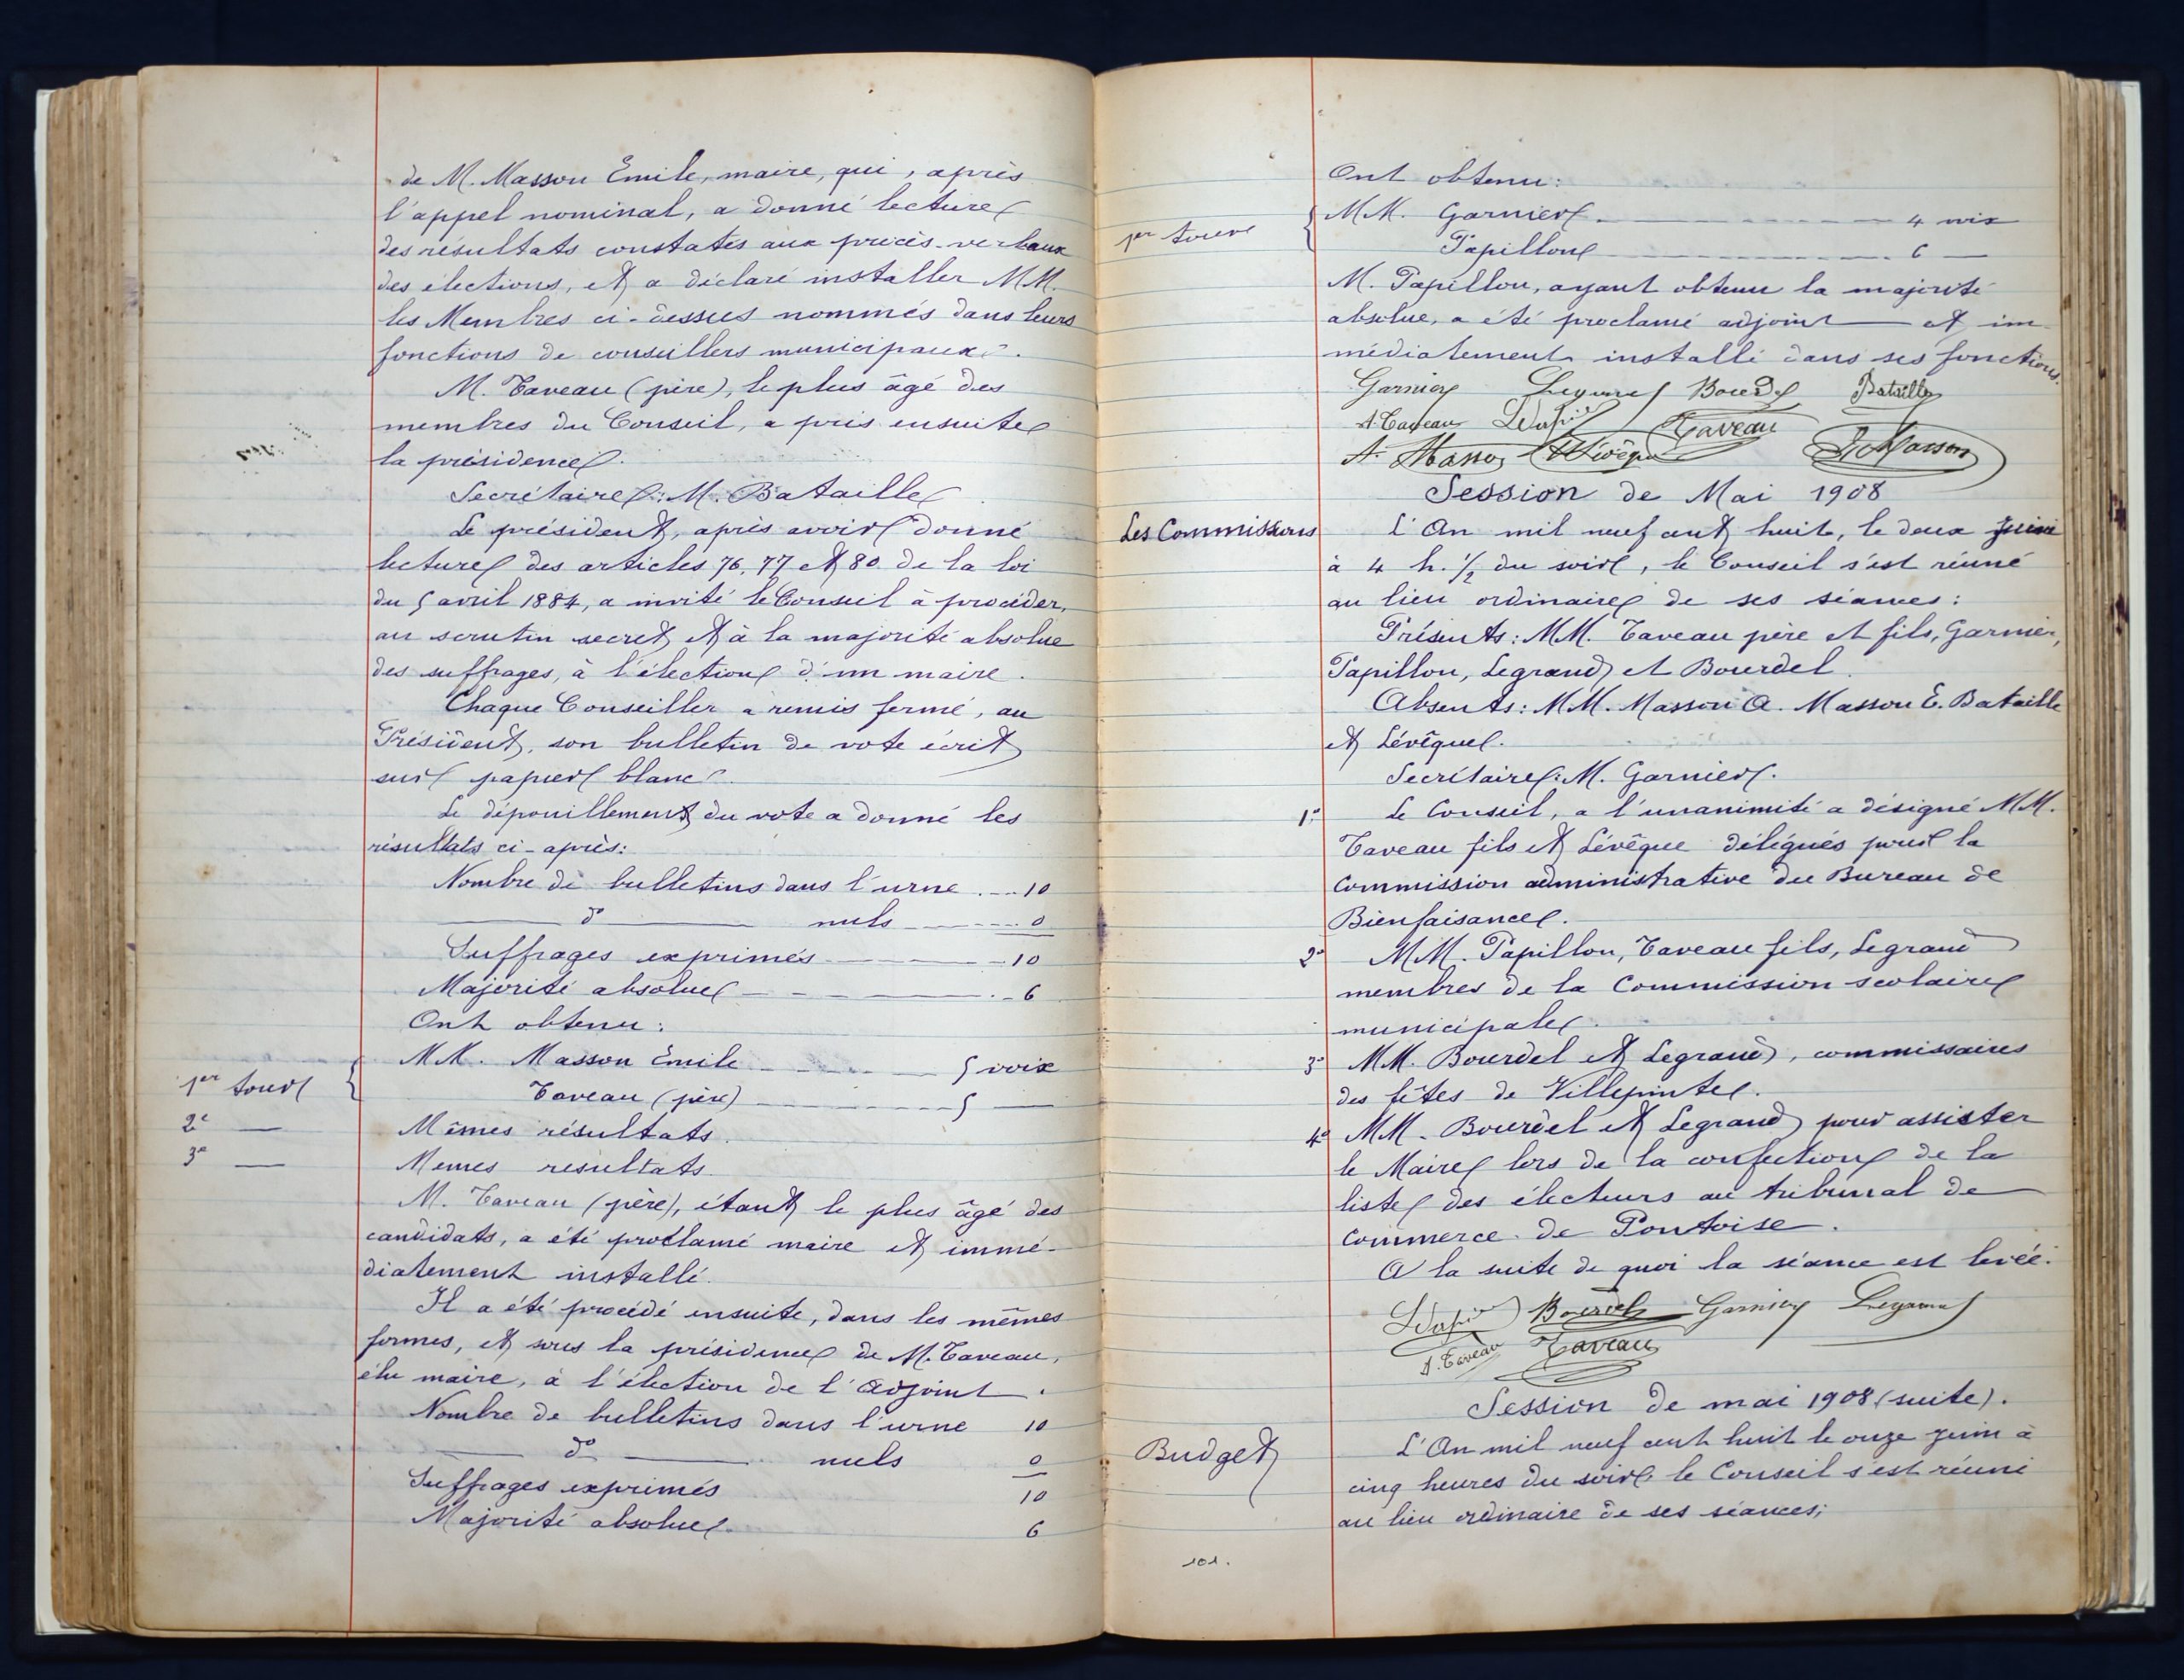 de M. Masson Emile, maire, qui, après
l'appel nominal, a donné lecture
des résultats constatés aux procès-verbaux
des élections, et a déclaré installer MM.
les Membres ci-dessus nommés dans leurs
fonctions de conseillers municipaux.
M. Taveau (père), le plus âgé des
membres du Conseil, a pris ensuite
la présidence.
Secrétaire: M. Bataille
Le président, après avoir donné
lecture des articles 76, 77 et 80 de la loi
du 5 avril 1884, a invité le Conseil à procéder,
au scrutin secret et à la majorité absolue
des suffrages, à l'élection d'un maire.
Chaque Conseiller a remis fermé, au
Président, son bulletin de vote écrit
sur papier blanc.
Le dépouillement du vote a donné les
résultats ci-après:
Nombre de bulletins dans l'urne 10
do nuls 0
Suffrages exprimés 10
Majorité absolue 6
Ont obtenu:
1er tour { MM. Masson Emile 5 voix
Taveau (père) 5 —
2e — Mêmes résultats.
3e — Memes resultats.
M. Taveau (père), étant le plus âgé des
candidats, a été proclamé maire et immé-
diatement installé.
Il a été procédé ensuite, dans les mêmes
formes, et sous la présidence de M. Taveau,
élu maire, à l'élection de l'adjoint.
Nombre de bulletins dans l'urne 10
do nuls 0
Suffrages exprimés 10
Majorité absolue 6
Ont obtenu:
1er tour { MM. Garnier 4 voix
Papillon 6 —
M. Papillon, ayant obtenu la majorité
absolue, a été proclamé adjoint — et im-
médiatement installé dans ses fonctions.
Garnier Legrand Bourdel Bataille
A. Taveau Taveau
A. Masson Lévêque E. Masson
Session de Mai 1908
Les Commissions
L'An mil neuf cent huit, le deux juin
à 4 h. 1/2 du soir, le Conseil s'est réuné
au lieu ordinaire de ses séances:
Présents: MM. Taveau père et fils, Garnier,
Papillon, Legrand et Bourdel.
Absents: MM. Masson A. Masson E. Bataille
et Lévêque.
Secrétaire: M. Garnier.
1o Le Conseil, a l'unanimité a désigné MM.
Taveau fils et Lévêque délégués pour la
Commission administrative du Bureau de
Bienfaisance.
2o MM. Papillon, Taveau fils, Legrand
membres de la Commission scolaire
municipale.
3o MM. Bourdel et Legrand, commissaires
des fêtes de Villepinte.
4o MM. Bourdel et Legrand pour assister
le Maire lors de la confection de la
liste des électeurs au tribunal de
Commerce de Pontoise.
A la suite de quoi la séance est levée.
Bourdel Garnier Legrand
A. Taveau Taveau
Session de mai 1908 (suite).
Budget
L'An mil neuf cent huit le onze juin à
cinq heures du soir le Conseil s'est réuni
au lieu ordinaire de ses séances;
101.